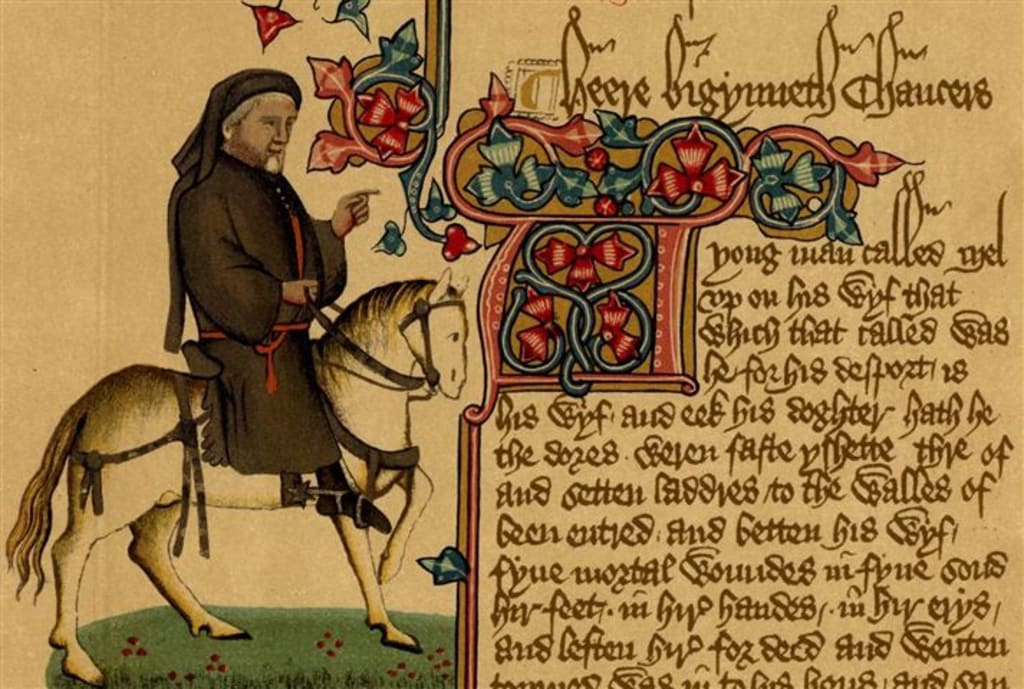 heere bigynneth Chaucers
A yong man called Mel
vp on his wyf that
which that called was
he for his desport / is
his wyf / and eek his doghter hath he
the dores . weren faste yshette thre of
and setten laddres / to the walles of
been entred / and betten his wyf /
fyue mortal woundes in fyue sond
hir feet / in hir handes / in hir erys /
and leften hir for deed and wenten
torned was in to his hous / and sau